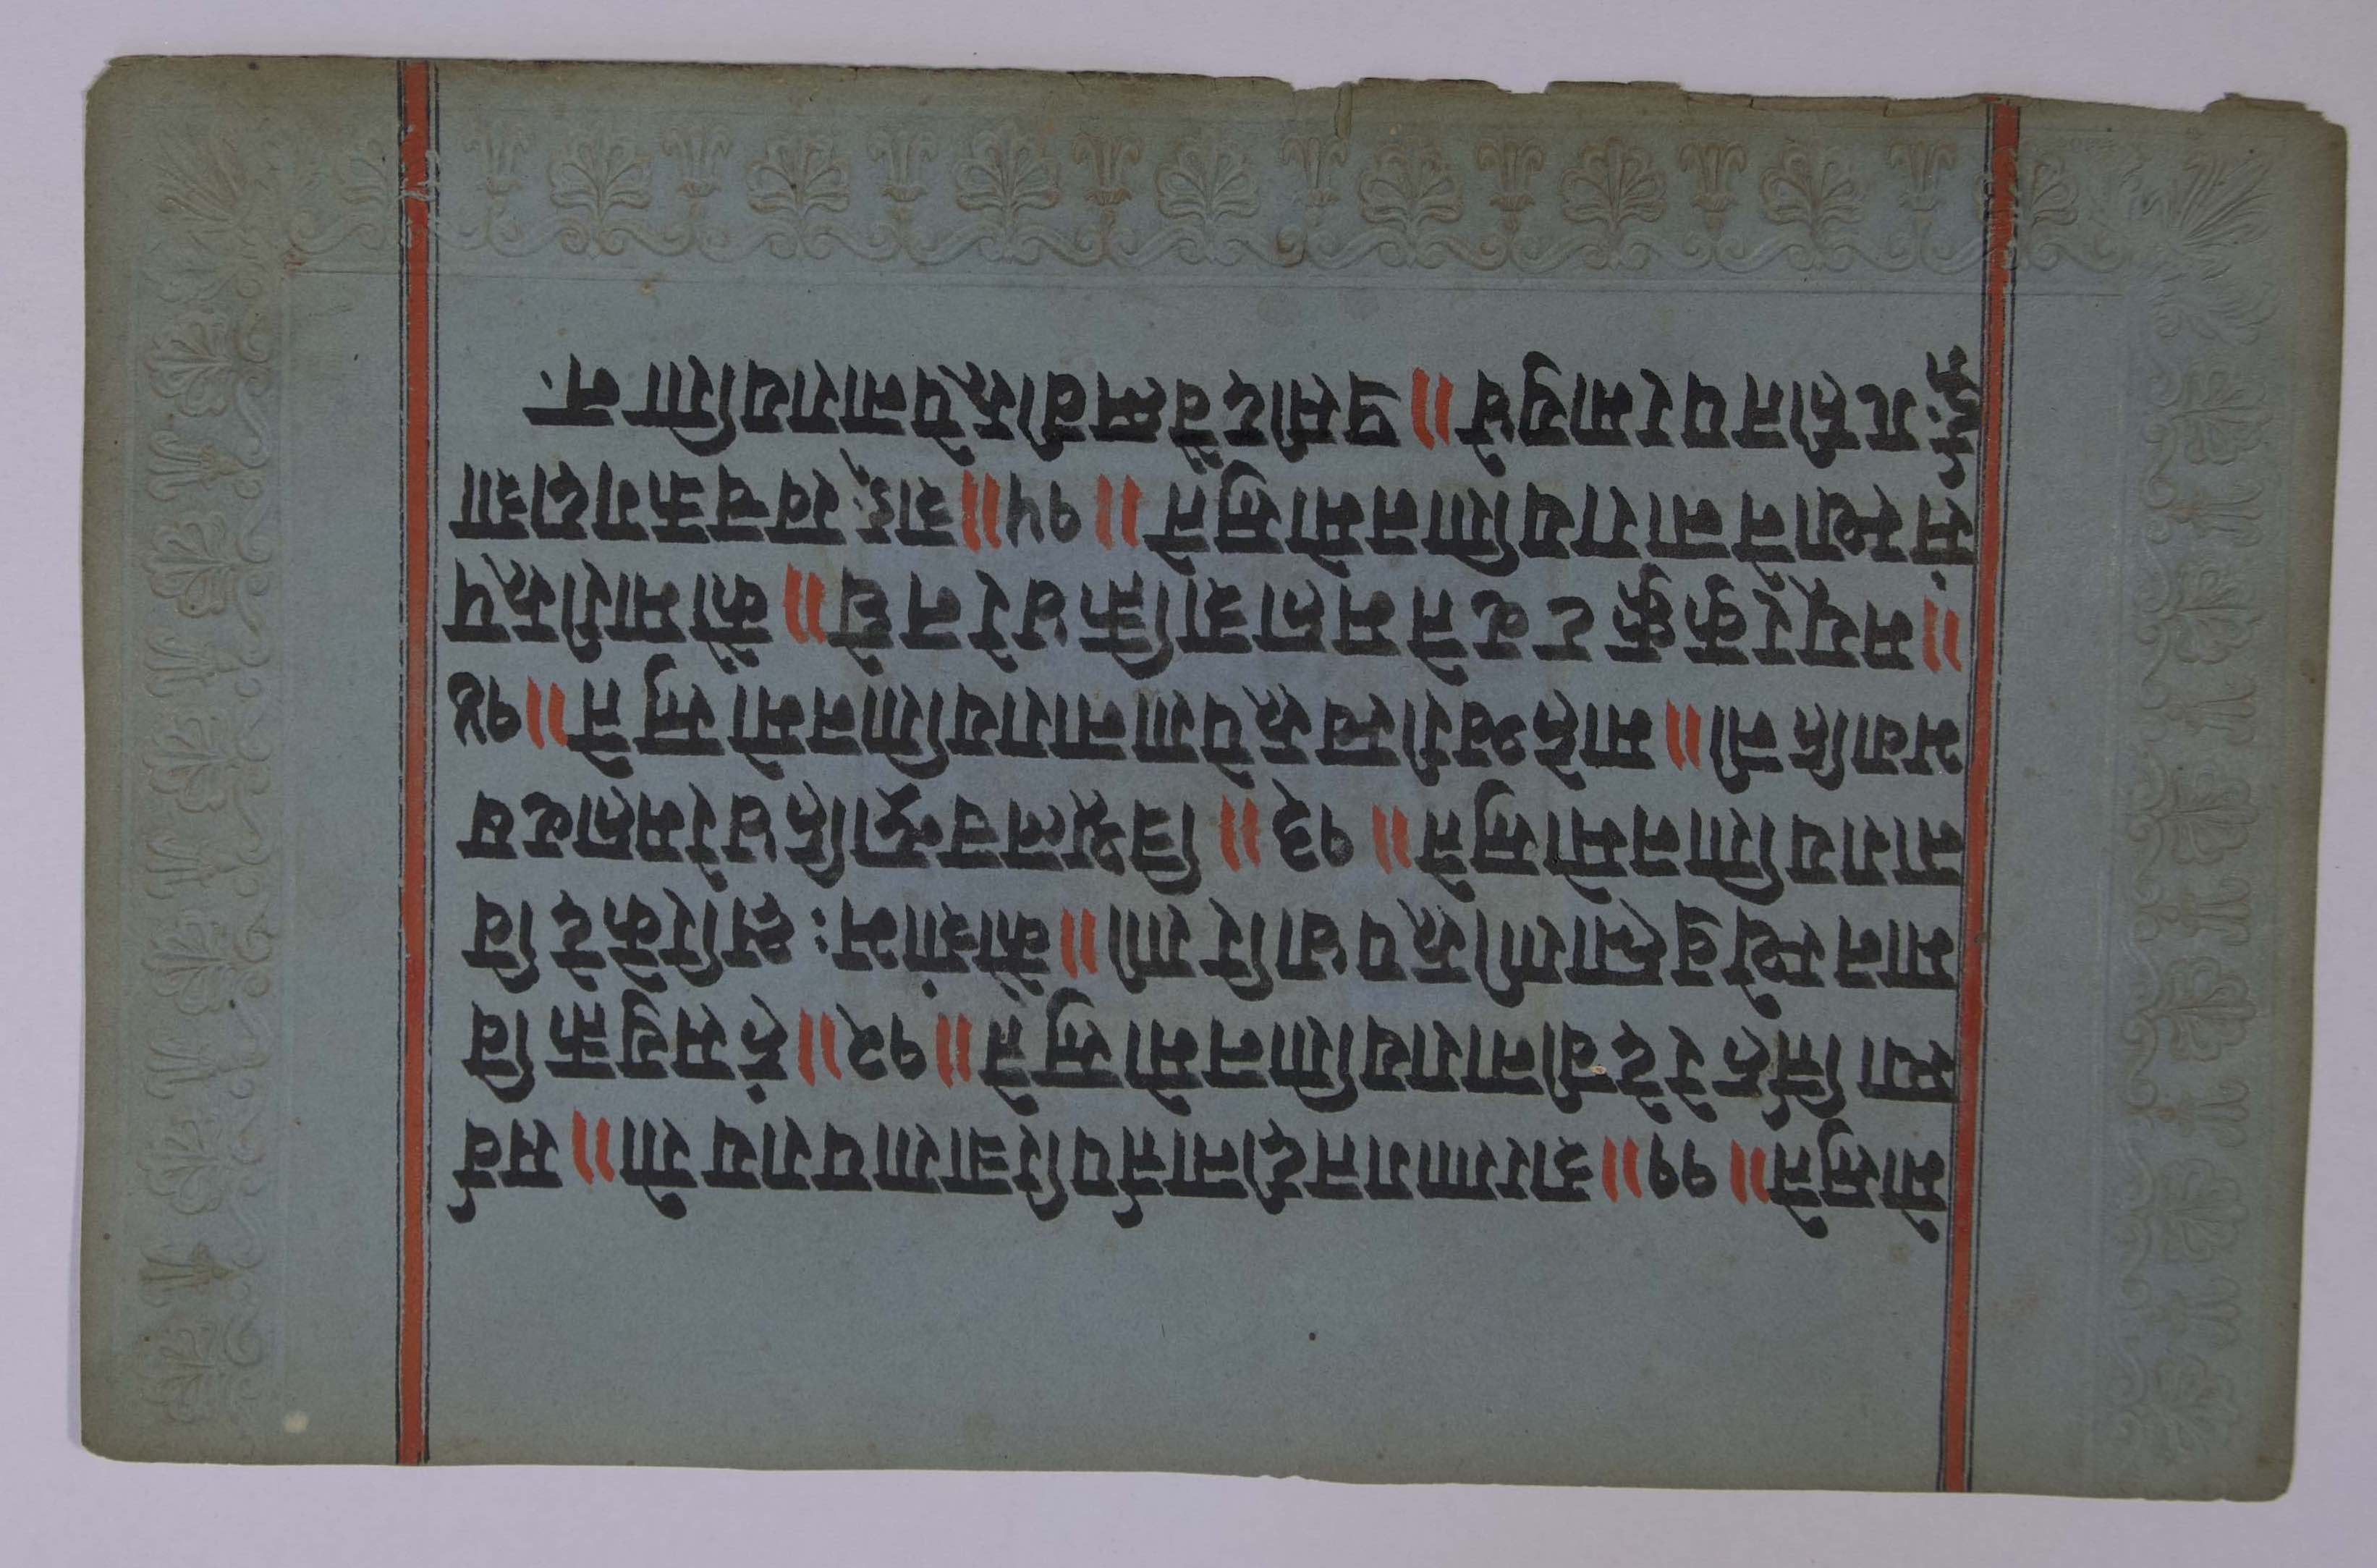 मोस्तुते॥ ११॥ शरणागतदीनार्त्तपरित्राणपरायणे॥ सर्व
स्यार्त्तिहरेदेवीनारायणिनमोस्तुते॥१२॥ हंसयुक्तवि
मानस्थेब्रह्माणीरूपधारिणी॥ कौशांभः क्षरिकेदेवि
नारायणिनमोस्तुते॥ १३॥ त्रिशूलचन्द्राहिधरेमहावृष
भवाहिनी॥ माहेश्वरीस्वरूपेणनारायणिनमोस्तुते॥१४
॥मयूरकुक्कुटवृतेमहाशक्तिधरेनघे॥ कौमारीरूप
संस्थानेनारायणिनमोस्तुते॥१५॥शङ्खचक्रगदाशा
र्ङ्गगृहीतपरमायुधे॥ प्रसीदवैष्णवीरूपेनारायणिन